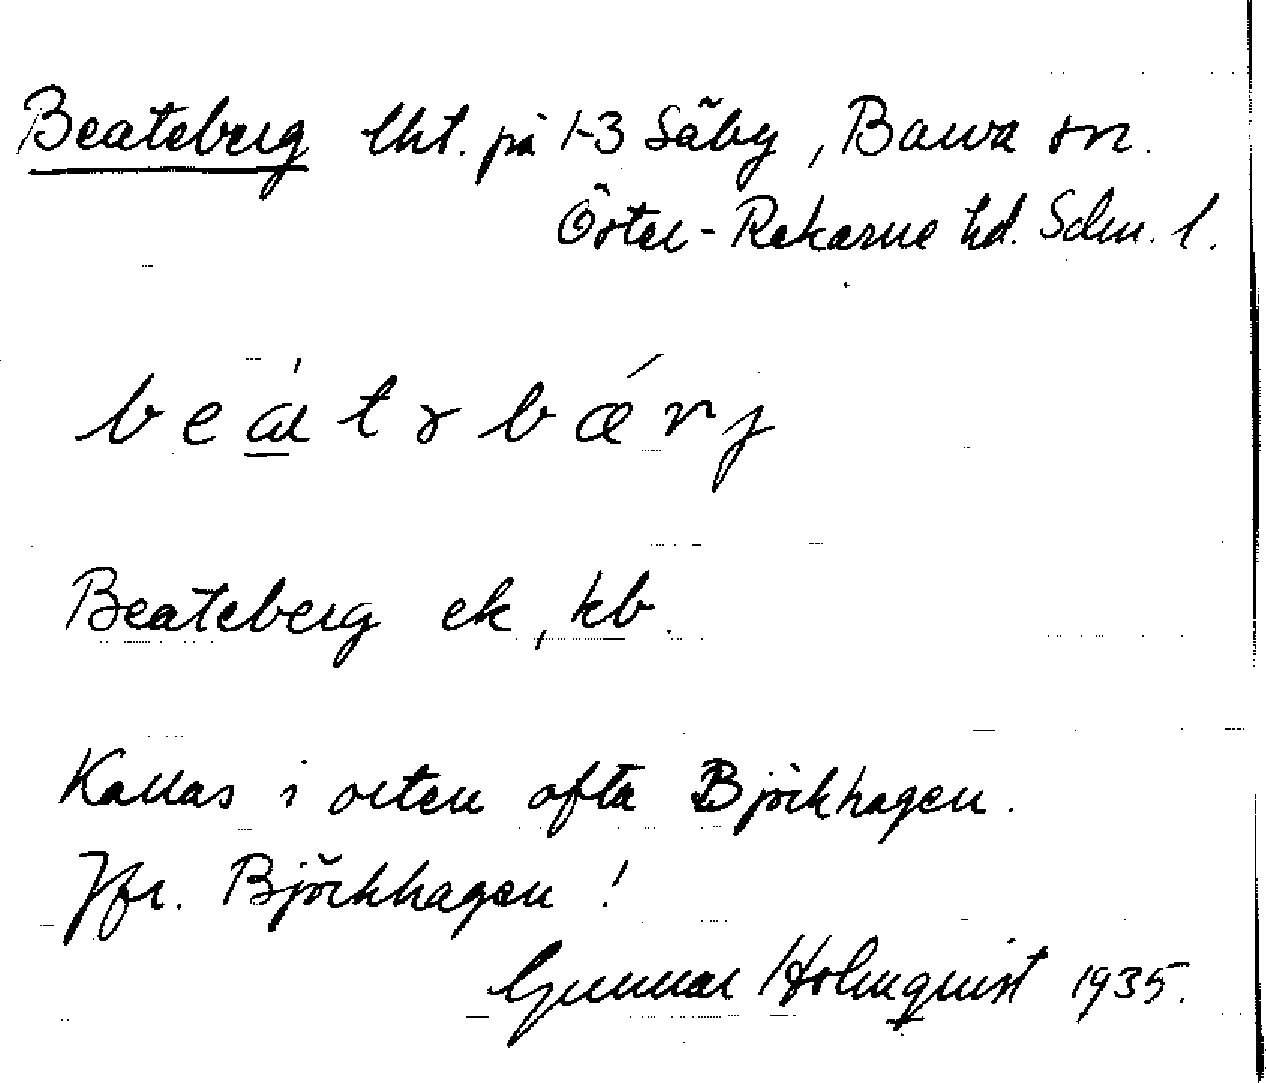 Beateberg lht. på 1-3 Säby, Barva sn.
Öster-Rekarne hd. Sdm. l.
beatrbærj
Beateberg ek, kb.
Kallas i orten ofta Björkhagen.
Jfr. Björkhagen!
Gunnar Holmquist 1935.